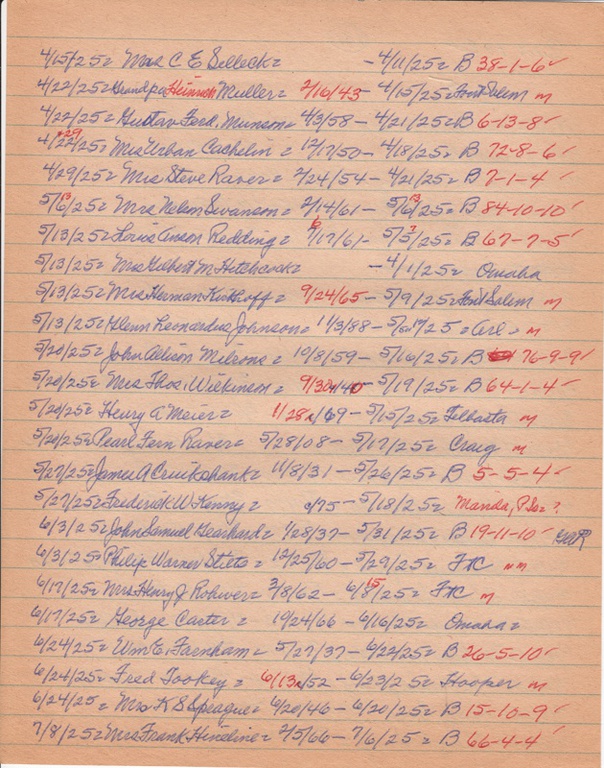 4/15/25= Mrs C E Selleck= - 4/11/25= B 38-1-6✓
4/22/25= Grandpa Heinrich Muller= 2/16/43- 4/15/25= Font Salem m
4/22/25= Gustav Ferd. Munson= 4/3/58- 4/21/25= B 6-13-8✓
4/29/25= Mrs Urban Cashelin= 12/17/50- 4/18/25= B 72-8-6✓
4/29/25= Mrs Steve Raver= 2/24/54- 4/21/25= B 7-1-4✓
5/6 13/25= Mrs Nelson Swanson= 2/14/61- 5/6 13/25= B 84-10-10✓
5/13/25= Louis Anson Redding= 6/17/61- 5/5 7/25= B 67-7-5✓
5/13/25= Mrs Gilbert M Hitchcock= - 4/1/25= Omaha
5/13/25= Mrs Herman Kirkhoff= 9/24/65- 5/9/25= Font Salem m
5/13/25= Glenn Leonardus Johnson= 11/3/88- 5/ 25= Arl- m
5/20/25= John Allison Milrone= 10/8/59- 5/16/25= B 76-9-9✓
5/20/25= Mrs Thos. Wilkinson= 9/30/40- 5/19/25= B 64-1-4✓
5/20/25= Henry A Meier= 1/28/69- 5/15/25= m
5/20/25= Pearl Fern Raver= 5/28/08- 5/17/25= Craig m
5/27/25= James A Cruikshank= 11/8/31- 5/26/25= B 5-5-4✓
5/27/25= Frederick W Kenny= /75- 5/18/25= Manila, P.Is=?
6/3/25= John Samuel Gearhard= 1/28/37- 5/31/25= B 19-11-10✓
6/3/25= Philip Warner Stitts= 12/25/60- 5/29/25= FxC nm
6/17/25= Mrs Henry J Rohwer= 3/8/62- 6/8 15/25= FxC m
6/17/25= George Carter= 10/24/66- 6/16/25= Omaha=
6/24/25= Wm E. Farnham= 5/27/37- 6/22/25= B 26-5-10✓
6/24/25= Fred Tookey= 6/13/52- 6/23/25= Hooper m
6/24/25= Mrs K S Sprague= 6/20/46- 6/20/25= B 15-10-9✓
7/8/25= Mrs Frank Hineline= 2/5/66- 7/6/25= B 66-4-4✓